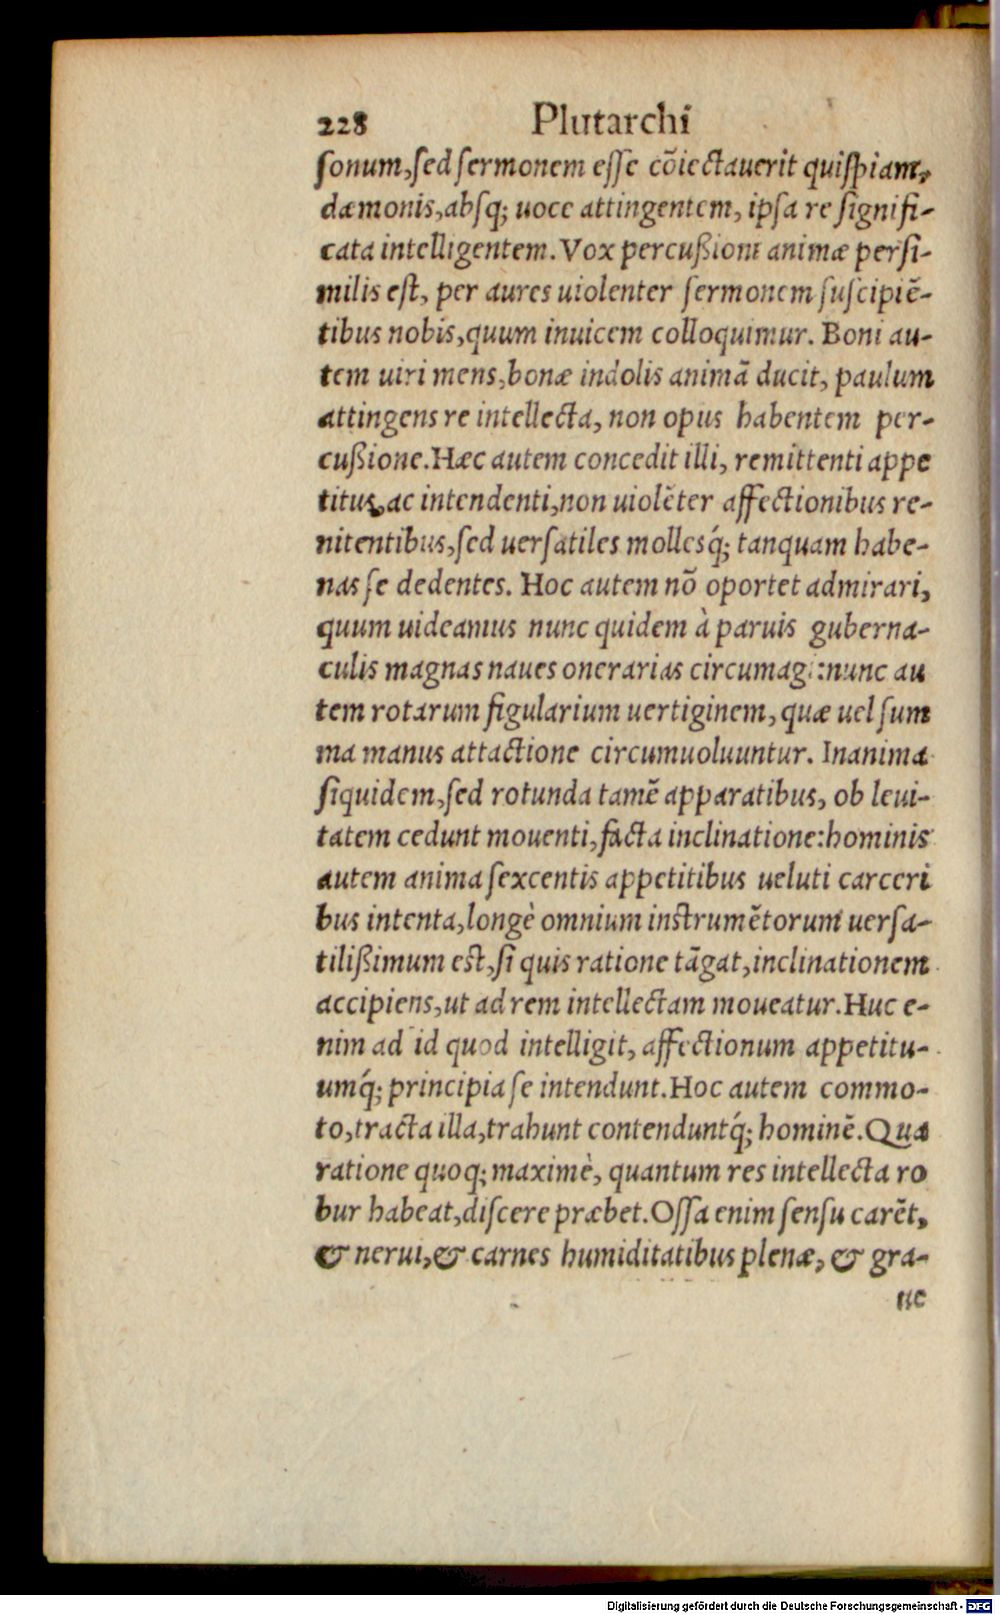 228 Plutarchi
ſonum,ſed ſermonem eſſe cõiectauerit quiſpiam,
dæmonis,abſq; uoce attingentem, ipſa re ſignifi-
cata intelligentem. Vox percußioni animæ perſi-
milis eſt, per aures uiolenter ſermonem ſuſcipiẽ-
tibus nobis,quum inuicem colloquimur. Boni au-
tem uiri mens,bonæ indolis animã ducit, paulum
attingens re intellecta, non opus habentem per-
cußione.Hæc autem concedit illi, remittenti appe
titus,ac intendenti,non uiolẽter affectionibus re-
nitentibus,ſed uerſatiles mollesq́; tanquam habe-
nas ſe dedentes. Hoc autem nõ oportet admirari,
quum uideamus nunc quidem à paruis guberna-
culis magnas naues onerarias circumagi:nunc au
tem rotarum figularium uertiginem, quæ uel ſum
ma manus attactione circumuoluuntur. Inanima
ſiquidem,ſed rotunda tamẽ apparatibus, ob leui-
tatem cedunt mouenti,facta inclinatione:hominis
autem anima ſexcentis appetitibus ueluti carceri
bus intenta,longè omnium inſtrumẽtorum uerſa-
tilißimum eſt,ſi quis ratione tãgat,inclinationem
accipiens,ut ad rem intellectam moueatur.Huc e-
nim ad id quod intelligit, affectionum appetitu-
umq́; principia ſe intendunt.Hoc autem commo-
to,tracta illa,trahunt contenduntq́; hominẽ.Qua
ratione quoq; maximè, quantum res intellecta ro
bur habeat,diſcere præbet.Oſſa enim ſenſu carẽt,
& nerui,& carnes humiditatibus plenæ, & gra-
ue
Digitalisierung gefördert durch die Deutsche Forschungsgemeinschaft - DFG